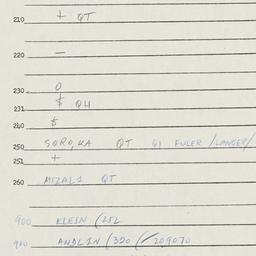 210 + QT
220 —
230 0
231 $ Q4
240 $
250 SORO, KA QT Q1 FULER /LANGER/
251 +
260 MIZAL1 QT
900 KLEIN (252
900 ANDLIN (320 (/209070